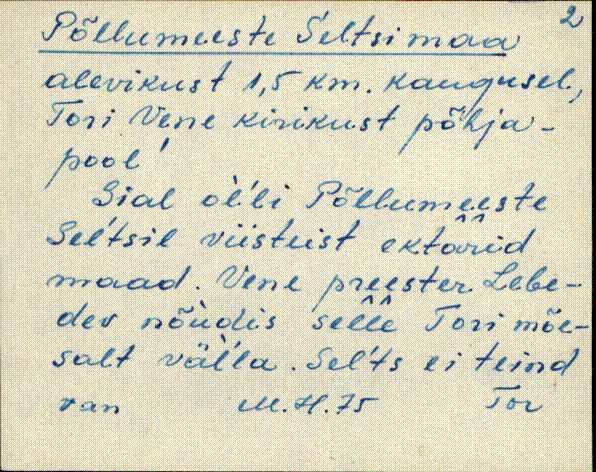 2
Põllumeeste Seltsi maa
alevikust 1,5 km. kaugusel,
Tori Vene kirikust põhja-
pool
Sial ol'li Põllumeeste
Sel'tsil viisteist ektârîd
maad. Vene preester Lebe-
dev nõùdis sellê Tori mõe-
salt väl'la. Sel'ts ei teind
van M.H.75 Tor